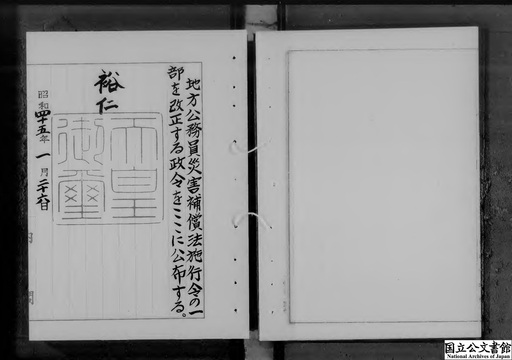 地方公務員災害補償法施行令の一
部を改正する政令をここに公布する。
裕仁
天皇
御璽
昭和四十五年一月二十六日
国立公文書館
National Archives of Japan